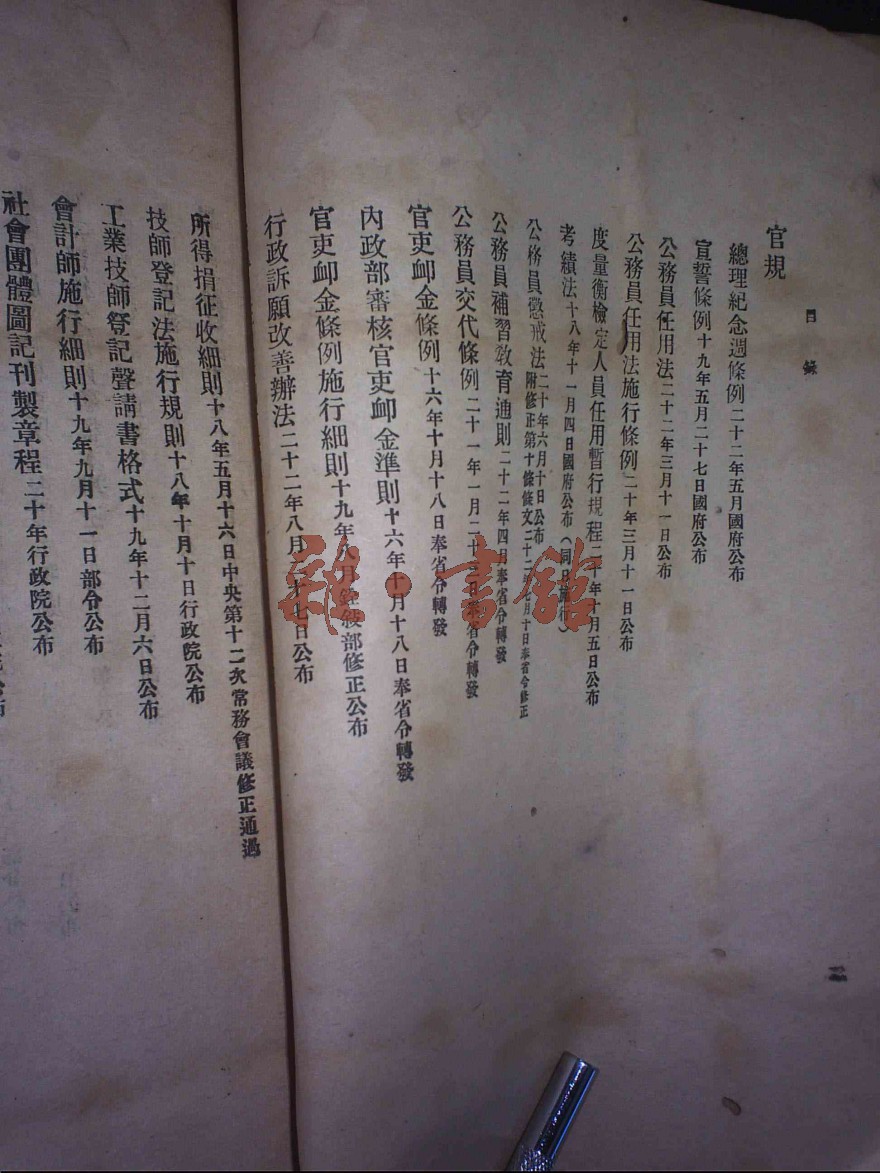 目錄
官規
總理紀念週條例二十二年五月國府公布
宣誓條例十九年五月二十七日國府公布
公務員任用法二十二年三月十一日公布
公務員任用法施行條例二十年三月十一日公布
度量衡檢定人員任用暫行規程二十年十月五日公布
考績法十八年十一月四日國府公布（同日施行）
公務員懲戒法二十年六月十日公布
附修正第十條條文二十二年月十日奉省令修正
公務員補習教育通則二十二年四月奉省令轉發
公務員交代條例二十一年一月二十日奉省令轉發
官吏卹金條例十六年十月十八日奉省令轉發
內政部審核官吏卹金準則十六年十月十八日奉省令轉發
官吏卹金條例施行細則十九年八月銓敍部修正公布
行政訴願改善辦法二十二年八月十七日公布
所得捐征收細則十八年五月十六日中央第十二次常務會議修正通過
技師登記法施行規則十八年十月十日行政院公布
工業技師登記聲請書格式十九年十二月六日公布
會計師施行細則十九年九月十一日部令公布
社會團體圖記刊製章程二十年行政院公布
院公布
二
雜·書館